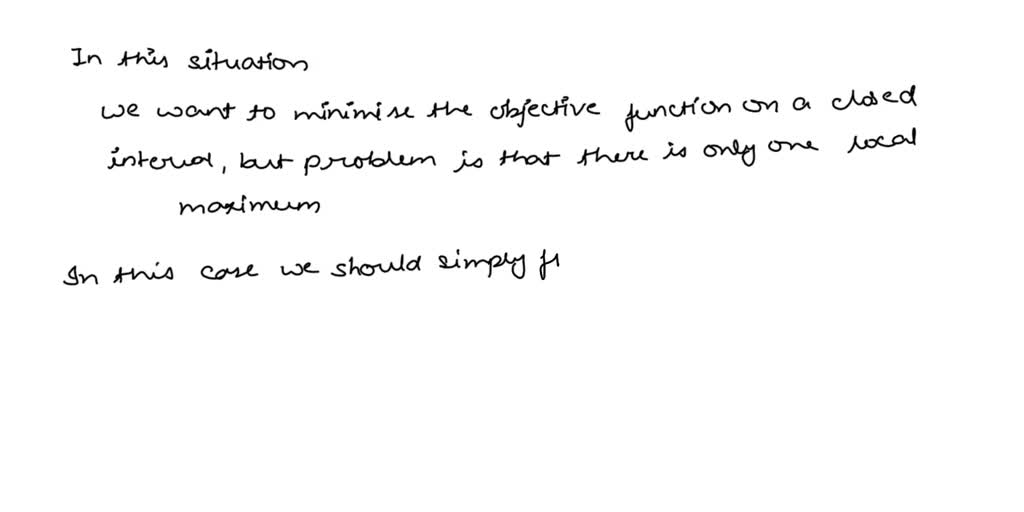 In this situation
we want to minimise the objective function on a closed
interval, but problem is that there is only one local
maximum
In this case we should simply